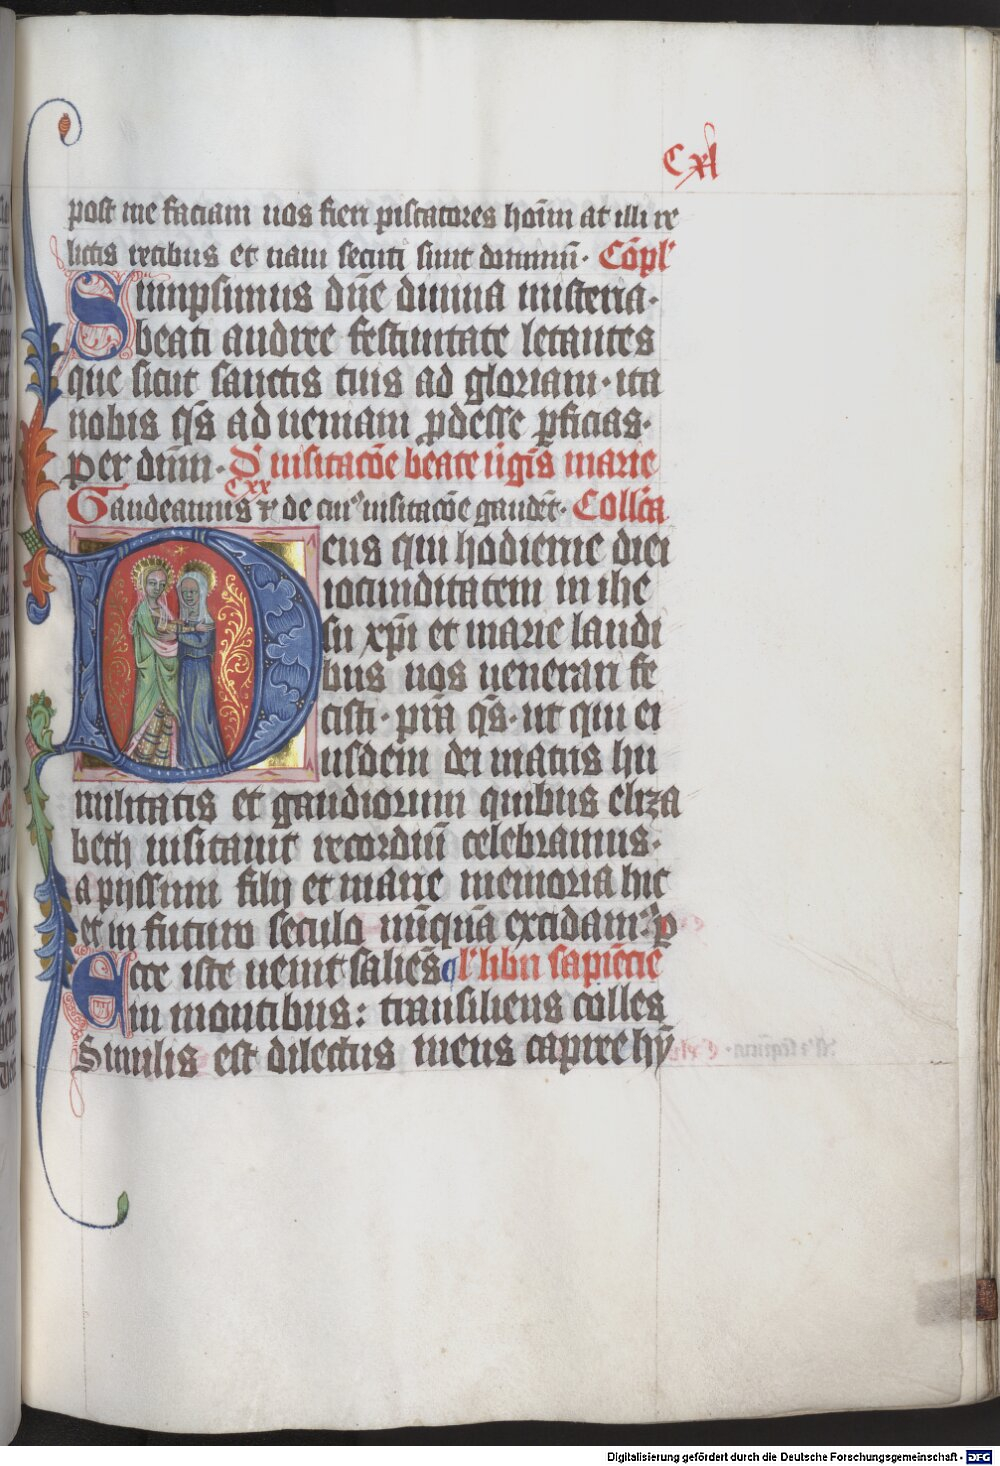 Cxl
post me faciam uos fieri piscatores hoīm at illi re
lictis retibus et naui secuti sunt dominū. Cōpl'
Sumpsimus dn̄e diuina misteria.
beati andree festiuitate letantes
que sicut sanctis tuis ad gloriam. ita
nobis qs̄ ad ueniam ꝓdesse ꝑficias.
per dn̄m. D' uisitacōe beate ūgīs marie
cxx
Gaudeamus de cui' uisitacōe gaudēt. Collc̄a
Deus qui hodierne diei
iocunditatem in ihe
su xp̄i et marie laudi
bus nos uenerari fe
cisti. pr̄a qs̄. ut qui ei
usdem dei matris hu
militatis et gaudiorum quibus eliza
beth uisitauit recordiū celebramus.
a pijssimi filij et marie memoria hic
et in futuro seculo nūquā excidam: ꝑ
Ecce iste uenit saliēs l' libri sapiēcie
in montibus: transiliens colles
Similis est dilectus meus capree hȳ
Digitalisierung gefördert durch die Deutsche Forschungsgemeinschaft - DFG